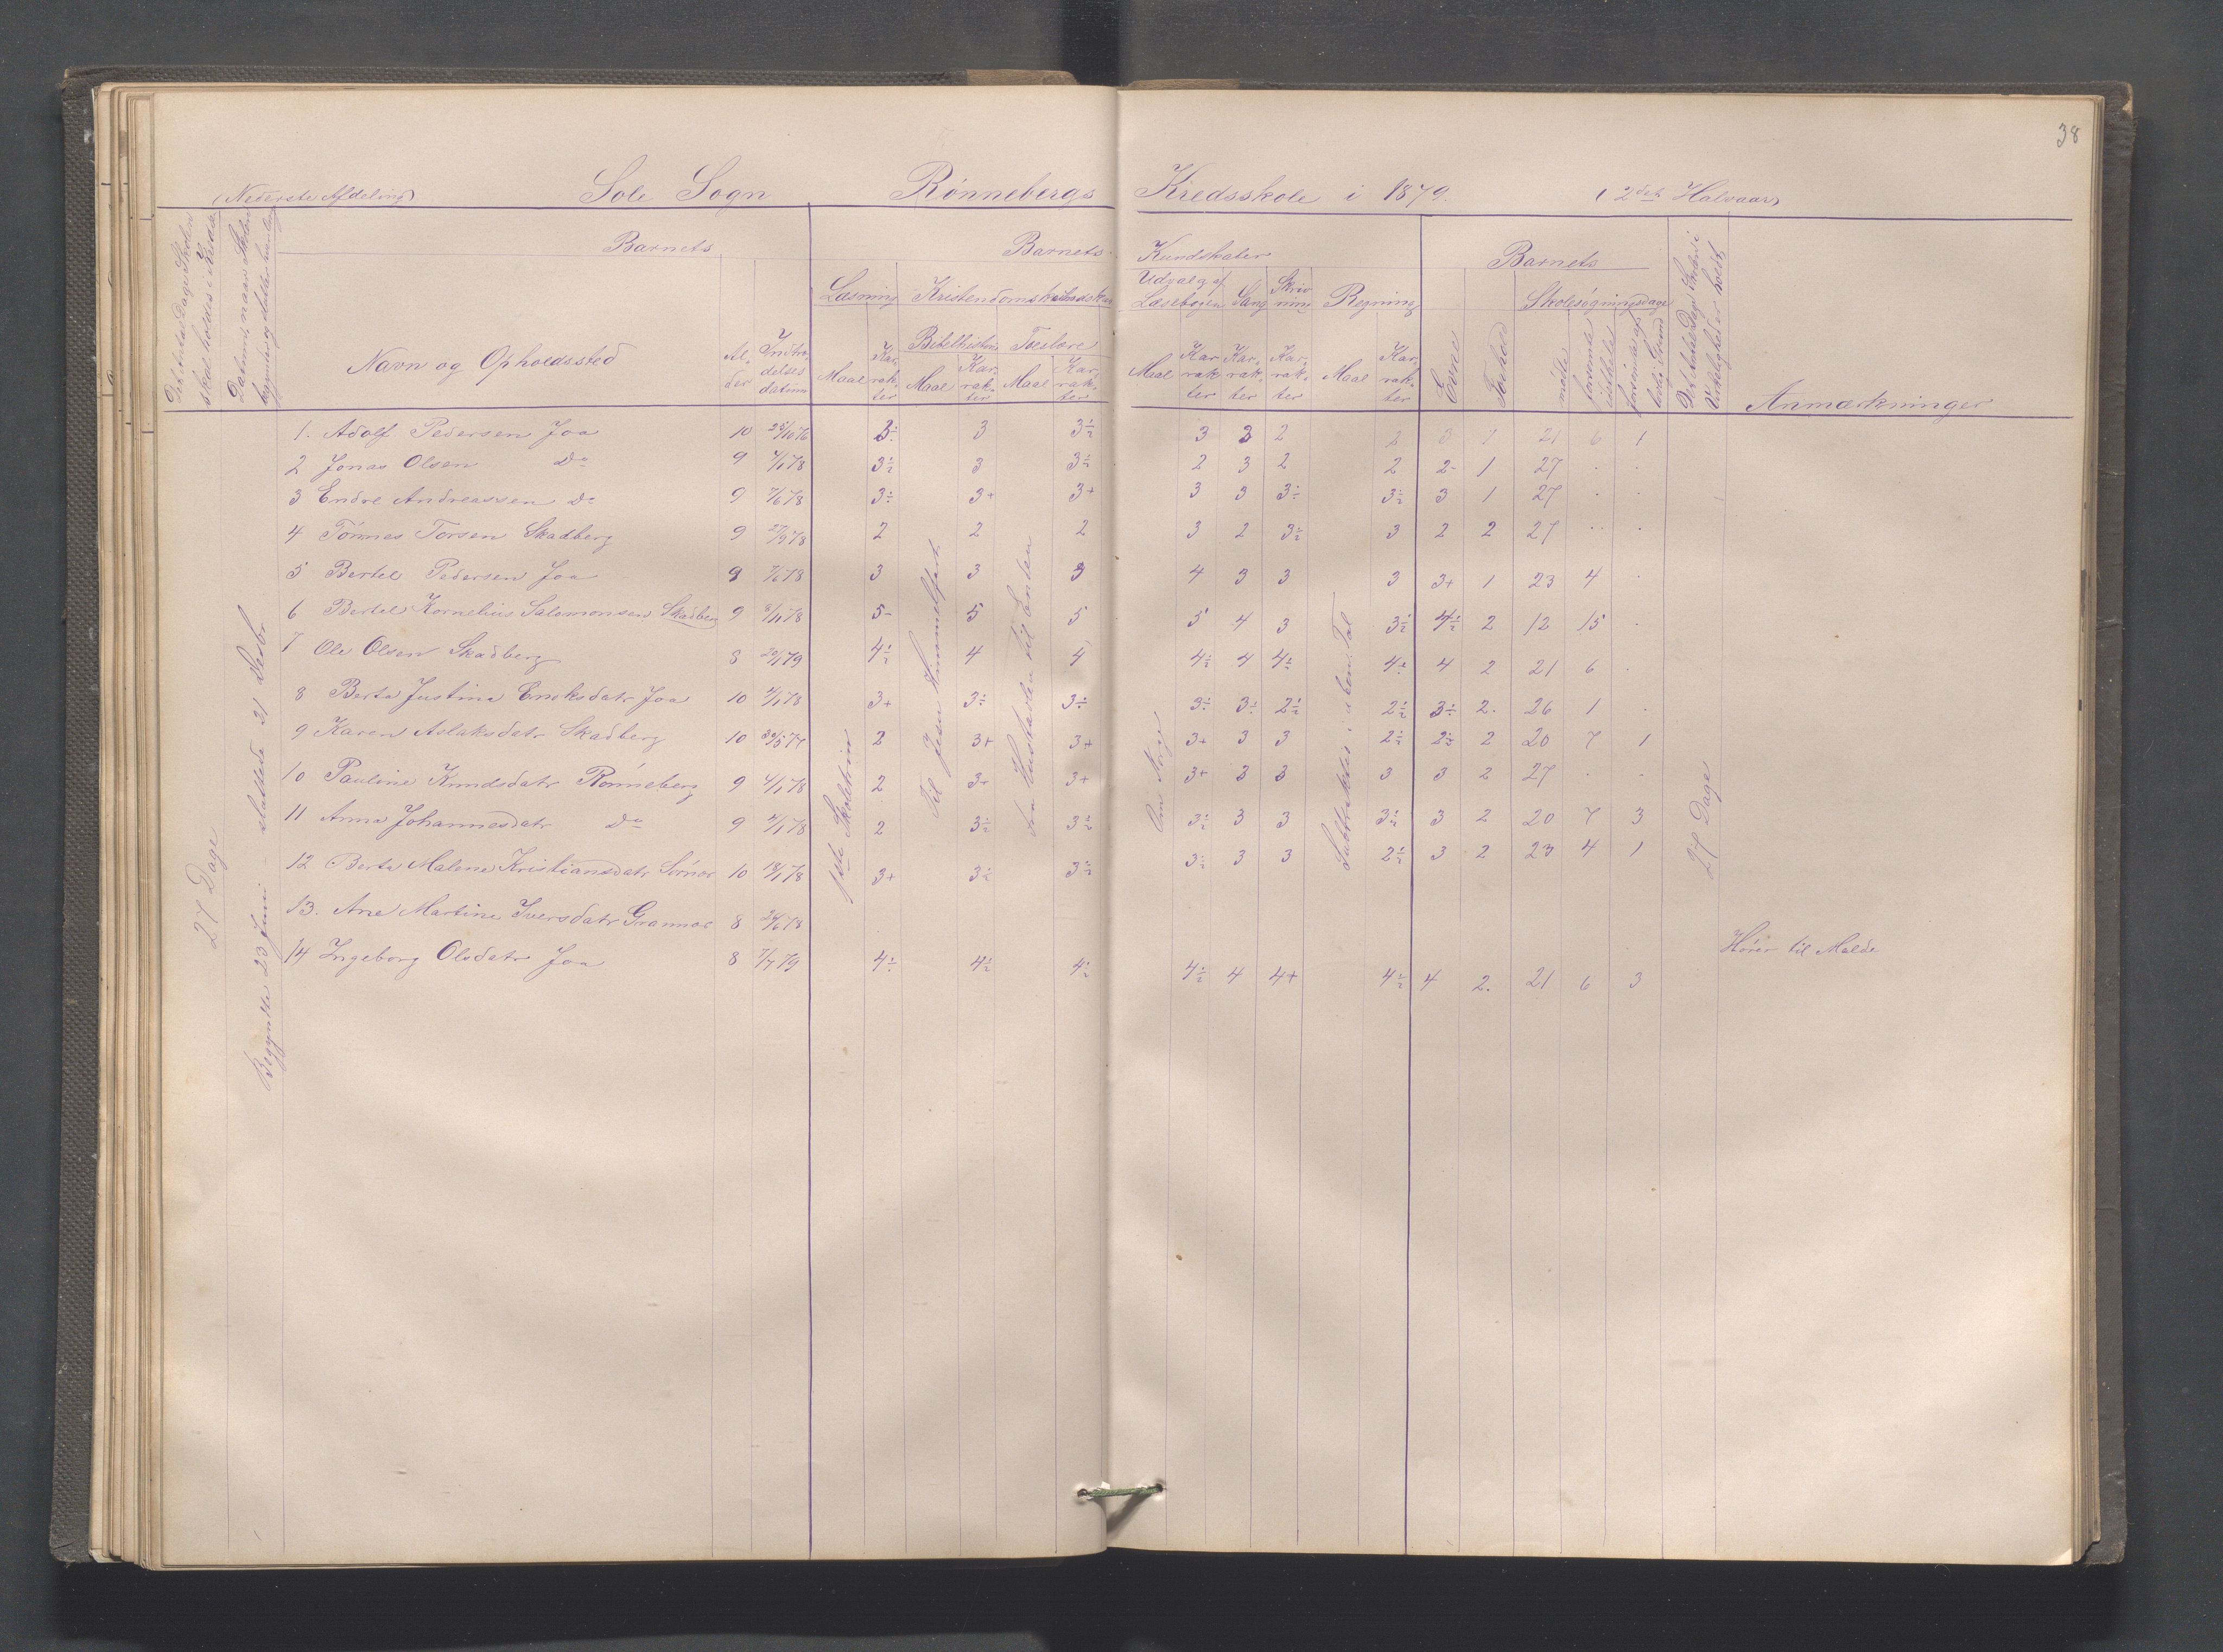 38
(Nederste Afdeling) Sole Sogn Rønnebergs Kredsskole i 1879. (2det Halvaar)
Det Antal Dage Skolen skal holdes i Kredsen
Datum, naar Skolen begynder og slutter hver Gang
Barnets
Barnets Kundskaber
Barnets
Det Antal Dage Skolen i Virkelighed er holdt
Læsning Kristendomskundskab Udvalg af Læsebogen Sang Skrivning Regning Skolesøgningsdage
Bibelhistorie Troeslære
Navn og Opholdssted Alder Indtrædelsesdatum Maal Karakter Maal Karakter Maal Karakter Maal Karakter Karakter Karakter Maal Karakter Evne Forhold mødte forsømte i det hele forsømte af lovlig Grund Anmærkninger
1. Adolf Pedersen Joa 10 25/10 76 3÷ 3 3÷ 3 3 2 2 3 1 21 6 1
2 Jonas Olsen Do 9 4/1 78 3÷ 3 3÷ 2 3 2 2 2- 1 27 . .
3 Endre Andreassen Do 9 7/6 78 3÷ 3+ 3+ 3 3 3÷ 3÷ 3 1 27 . .
4 Tønnes Torsen Skadberg 9 27/9 78 2 2 2 3 2 3÷ 3 2 2 27 . .
5 Bertel Pedersen Joa 9 7/6 78 3 3 3 4 3 3 3 3+ 1 23 4 .
6 Bertel Kornelius Salomonsen Skadberg 9 8/11 78 5- 5 5 5 4 3 3÷ 4÷ 2 12 15 .
7 Ole Olsen Skadberg 8 20/1 79 4÷ 4 4 4÷ 4 4÷ 4÷ 4 2 21 6 .
8 Berta Justine Enoksdatr Joa 10 4/1 78 3+ 3÷ 3÷ 3÷ 3÷ 2÷ 2÷ 3÷ 2. 26 1 .
9 Karen Aslaksdatr Skadberg 10 30/5 77 2 3+ 3+ 3+ 3 3 2÷ 2÷ 2 20 7 1
10 Pauline Knudsdatr Rønneberg 9 4/1 78 2 3+ 3+ 3+ 3 3 3 3 2 27 . .
11 Anna Johannesdatr Do 9 4/1 78 2 3÷ 3÷ 3÷ 3 3 3÷ 3 2 20 7 3
12 Berta Malene Kristiansdatr Sørnes 10 18/1 78 3+ 3÷ 3÷ 3÷ 3 3 2÷ 3 2 23 4 1
13. Ane Martine Iversdatr Grannes 8 24/6 78 Hører til Malde
14 Ingeborg Olsdatr Joa 8 7/7 79 4÷ 4÷ 4÷ 4÷ 4 4+ 4÷ 4 2. 21 6 3
27 Dage
Begyndte 23 Juni sluttede 31 Decbr
Skoletrin
Til Jesu Himmelfart
Fra Hustavlen til Enden
Om Norge
Subtraktion i ben. Tal
27 Dage